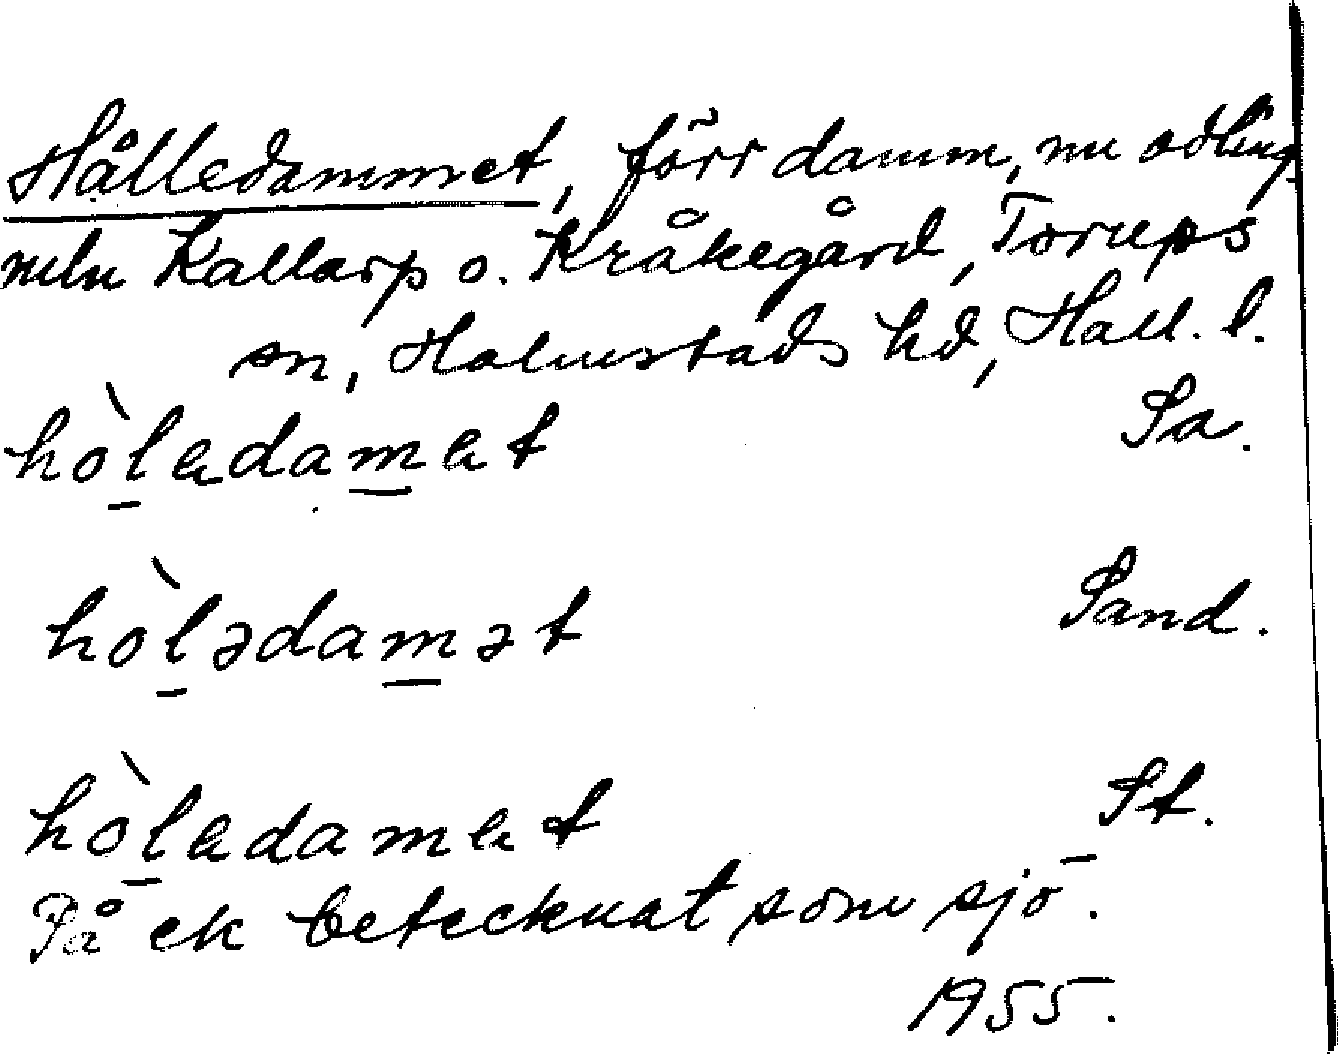 Hålledammet, förr damm, nu odling
mln Kallarp o. Kråkegård, Torups
sn, Halmstads hd, Hall. l.
hòladamat Sa.
hòlədamət Sand.
hòladamat St.
På ek betecknat som sjö.
1955.